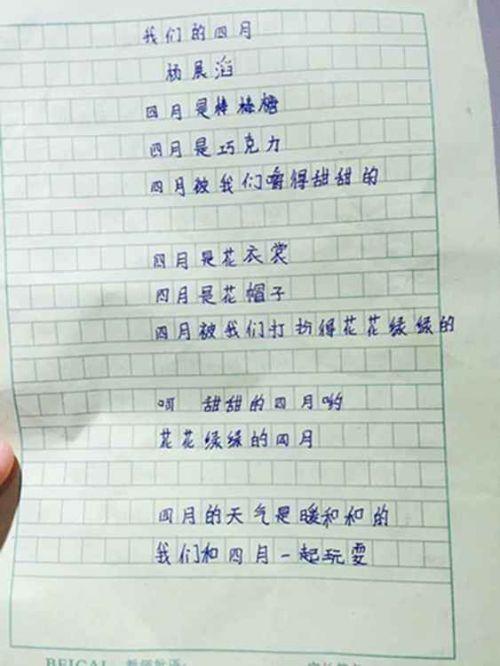 我们的四月
杨展滔
四月是棒棒糖
四月是巧克力
四月被我们嚼得甜甜的
四月是花衣裳
四月是花帽子
四月被我们打扮得花花绿绿的
呵 甜甜的四月哟
花花绿绿的四月
四月的天气是暖和和的
我们和四月一起玩耍
BEICAI